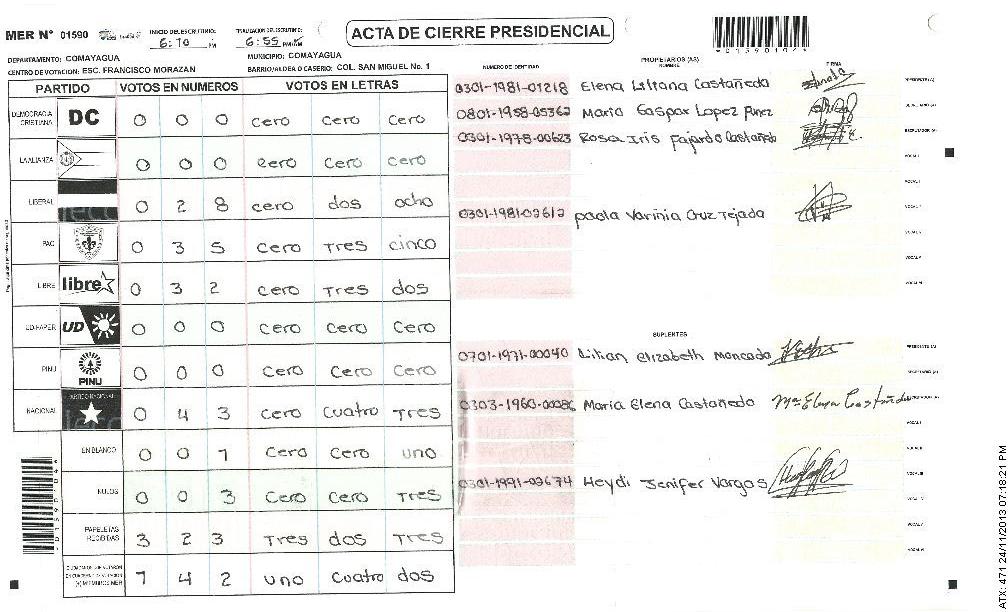 MER N° 01590
INICIO DEL ESCRUTINIO: 6:10 PM
FINALIZACION DEL ESCRUTINIO: 6:55 PM
ACTA DE CIERRE PRESIDENCIAL
DEPARTAMENTO: COMAYAGUA
MUNICIPIO: COMAYAGUA
CENTRO DE VOTACION: ESC. FRANCISCO MORAZAN
BARRIO/ALDEA O CASERIO: COL. SAN MIGUEL No. 1
PARTIDO VOTOS EN NUMEROS VOTOS EN LETRAS
DEMOCRACIA CRISTIANA DC 0 0 0 cero cero cero
LA ALIANZA 0 0 0 cero cero cero
LIBERAL 0 2 8 cero dos ocho
PAC 0 3 5 cero Tres cinco
LIBRE libre 0 3 2 cero Tres dos
UD-FAPER UD 0 0 0 cero cero cero
PINU PINU 0 0 0 cero cero cero
NACIONAL PARTIDO NACIONAL 0 4 3 cero cuatro Tres
EN BLANCO 0 0 1 cero cero uno
NULOS 0 0 3 cero cero Tres
PAPELETAS RECIBIDAS 3 2 3 Tres dos Tres
1 4 2 uno cuatro dos
NUMERO DE IDENTIDAD
PROPIETARIOS (AS)
NOMBRE
FIRMA
0301-1981-01218 Elena Liliana Castañeda PRESIDENTE (A)
0801-1958-05362 Maria Gaspar Lopez Perez SECRETARIO (A)
0301-1978-00623 Rosa Iris Fajardo Castañeda ESCRUTADOR (A)
VOCAL I
VOCAL II
0301-1981-02612 paola Variñia Cruz Tejada
VOCAL V
SUPLENTES
0701-1971-00040 Lilian Elizabeth Moncada PRESIDENTE (A)
SECRETARIO (A)
0303-1960-00086 Maria Elena Castañedo Ma Elena Castañeda
VOCAL I
VOCAL II
0301-1991-03674 Heydi Jenifer Vargas VOCAL III
ATX: 471 24/11/2013 07:18:21 PM